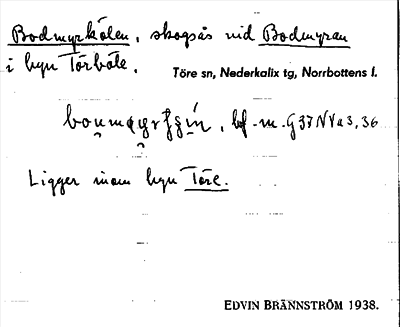 Bodmyrkölen, skogsås vid Bodmyran
i byn Törböle.
Töre sn, Nederkalix tg, Norrbottens l.
bf. m. G37NVa3,36
Ligger inom byn Töre.
EDVIN BRÄNNSTRÖM 1938.